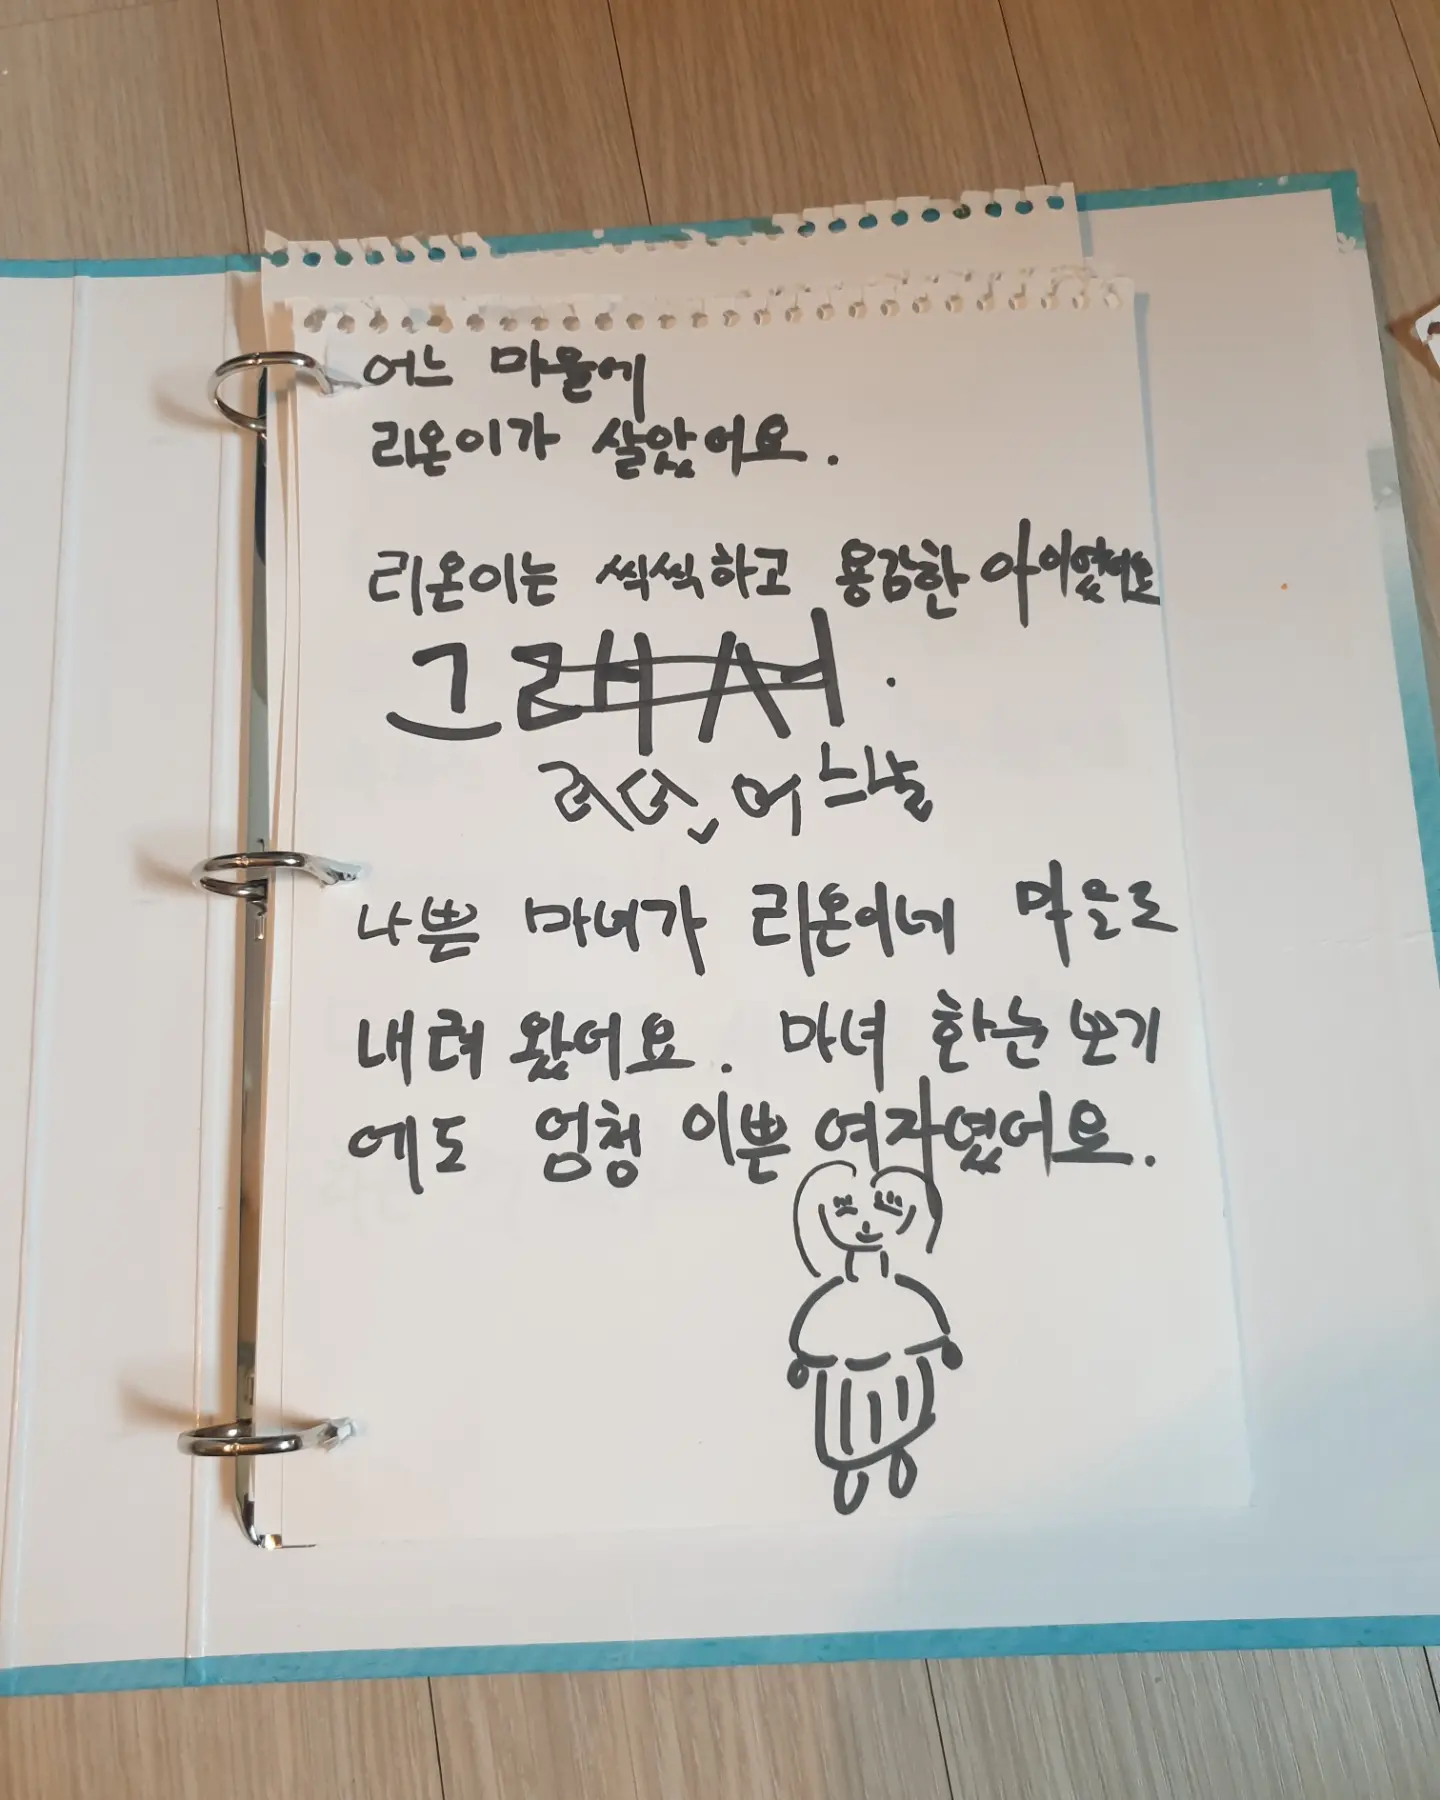 어느 마을에
리온이가 살았어요.
리온이는 씩씩하고 용감한 아이었어요
그래서 .
러던 어느날
나쁜 마녀가 리온이네 마을로
내려 왔어요. 마녀 한눈 보기
에도 엄청 이쁜 여자였어요.